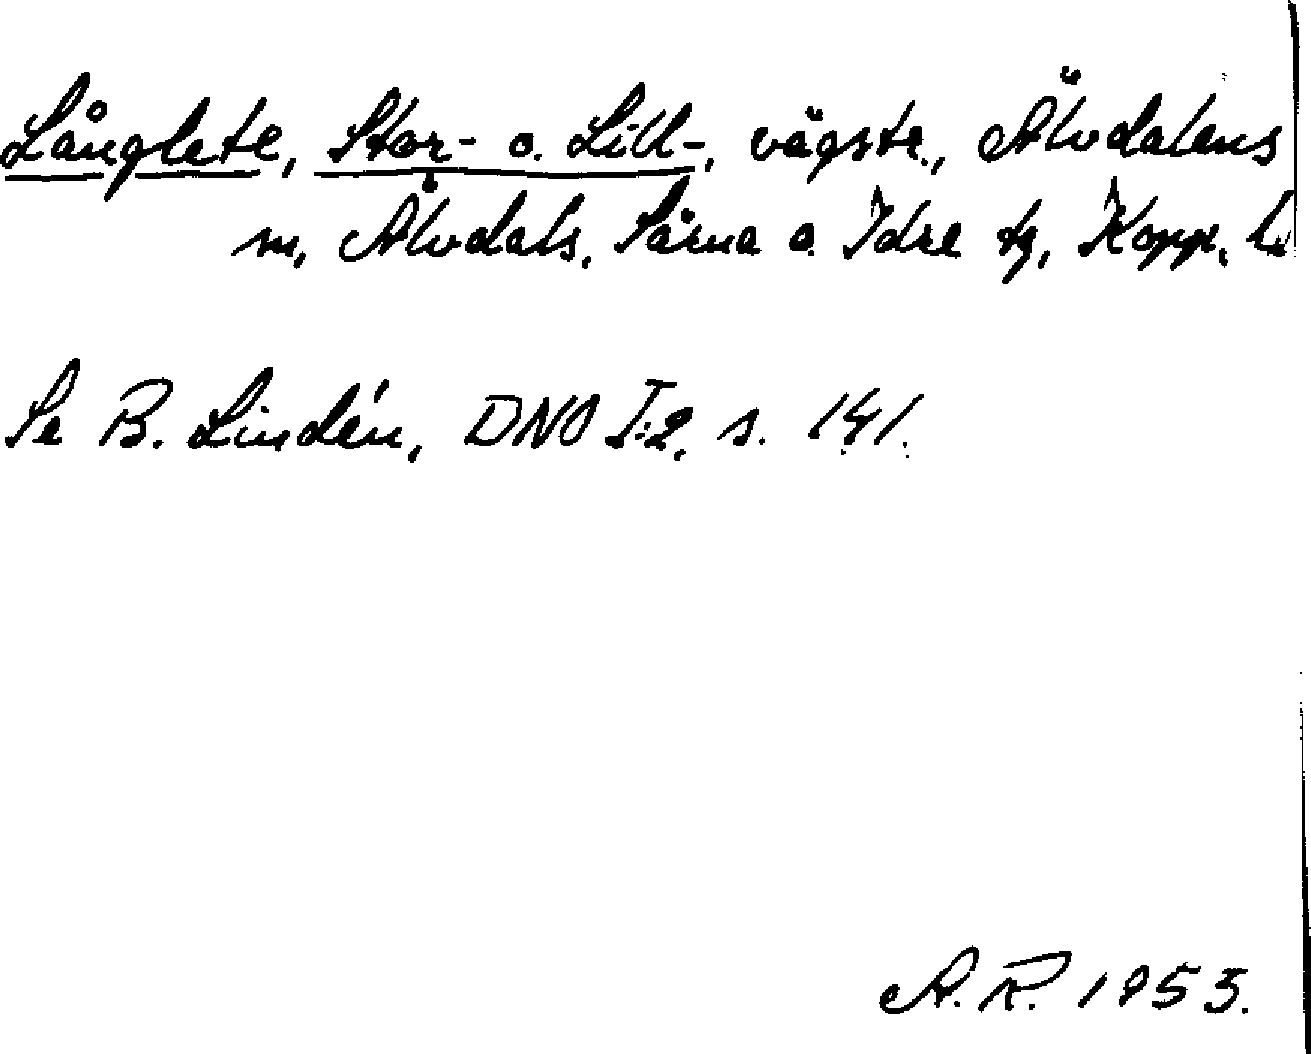 Långlete, Stor- o. Lill-, vägstr., Älvdalens
m, Älvdals, Särna o. Idre tg, Kopp. l.
Se B. Lindén, DNO I:2, s. 141.
A. R. 1953.